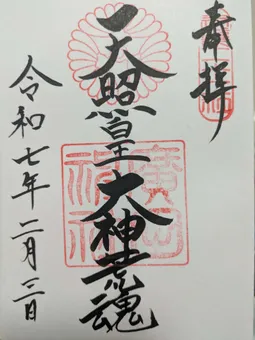 奉拝
天照皇大神荒魂
廣田
神社
令和七年二月三日